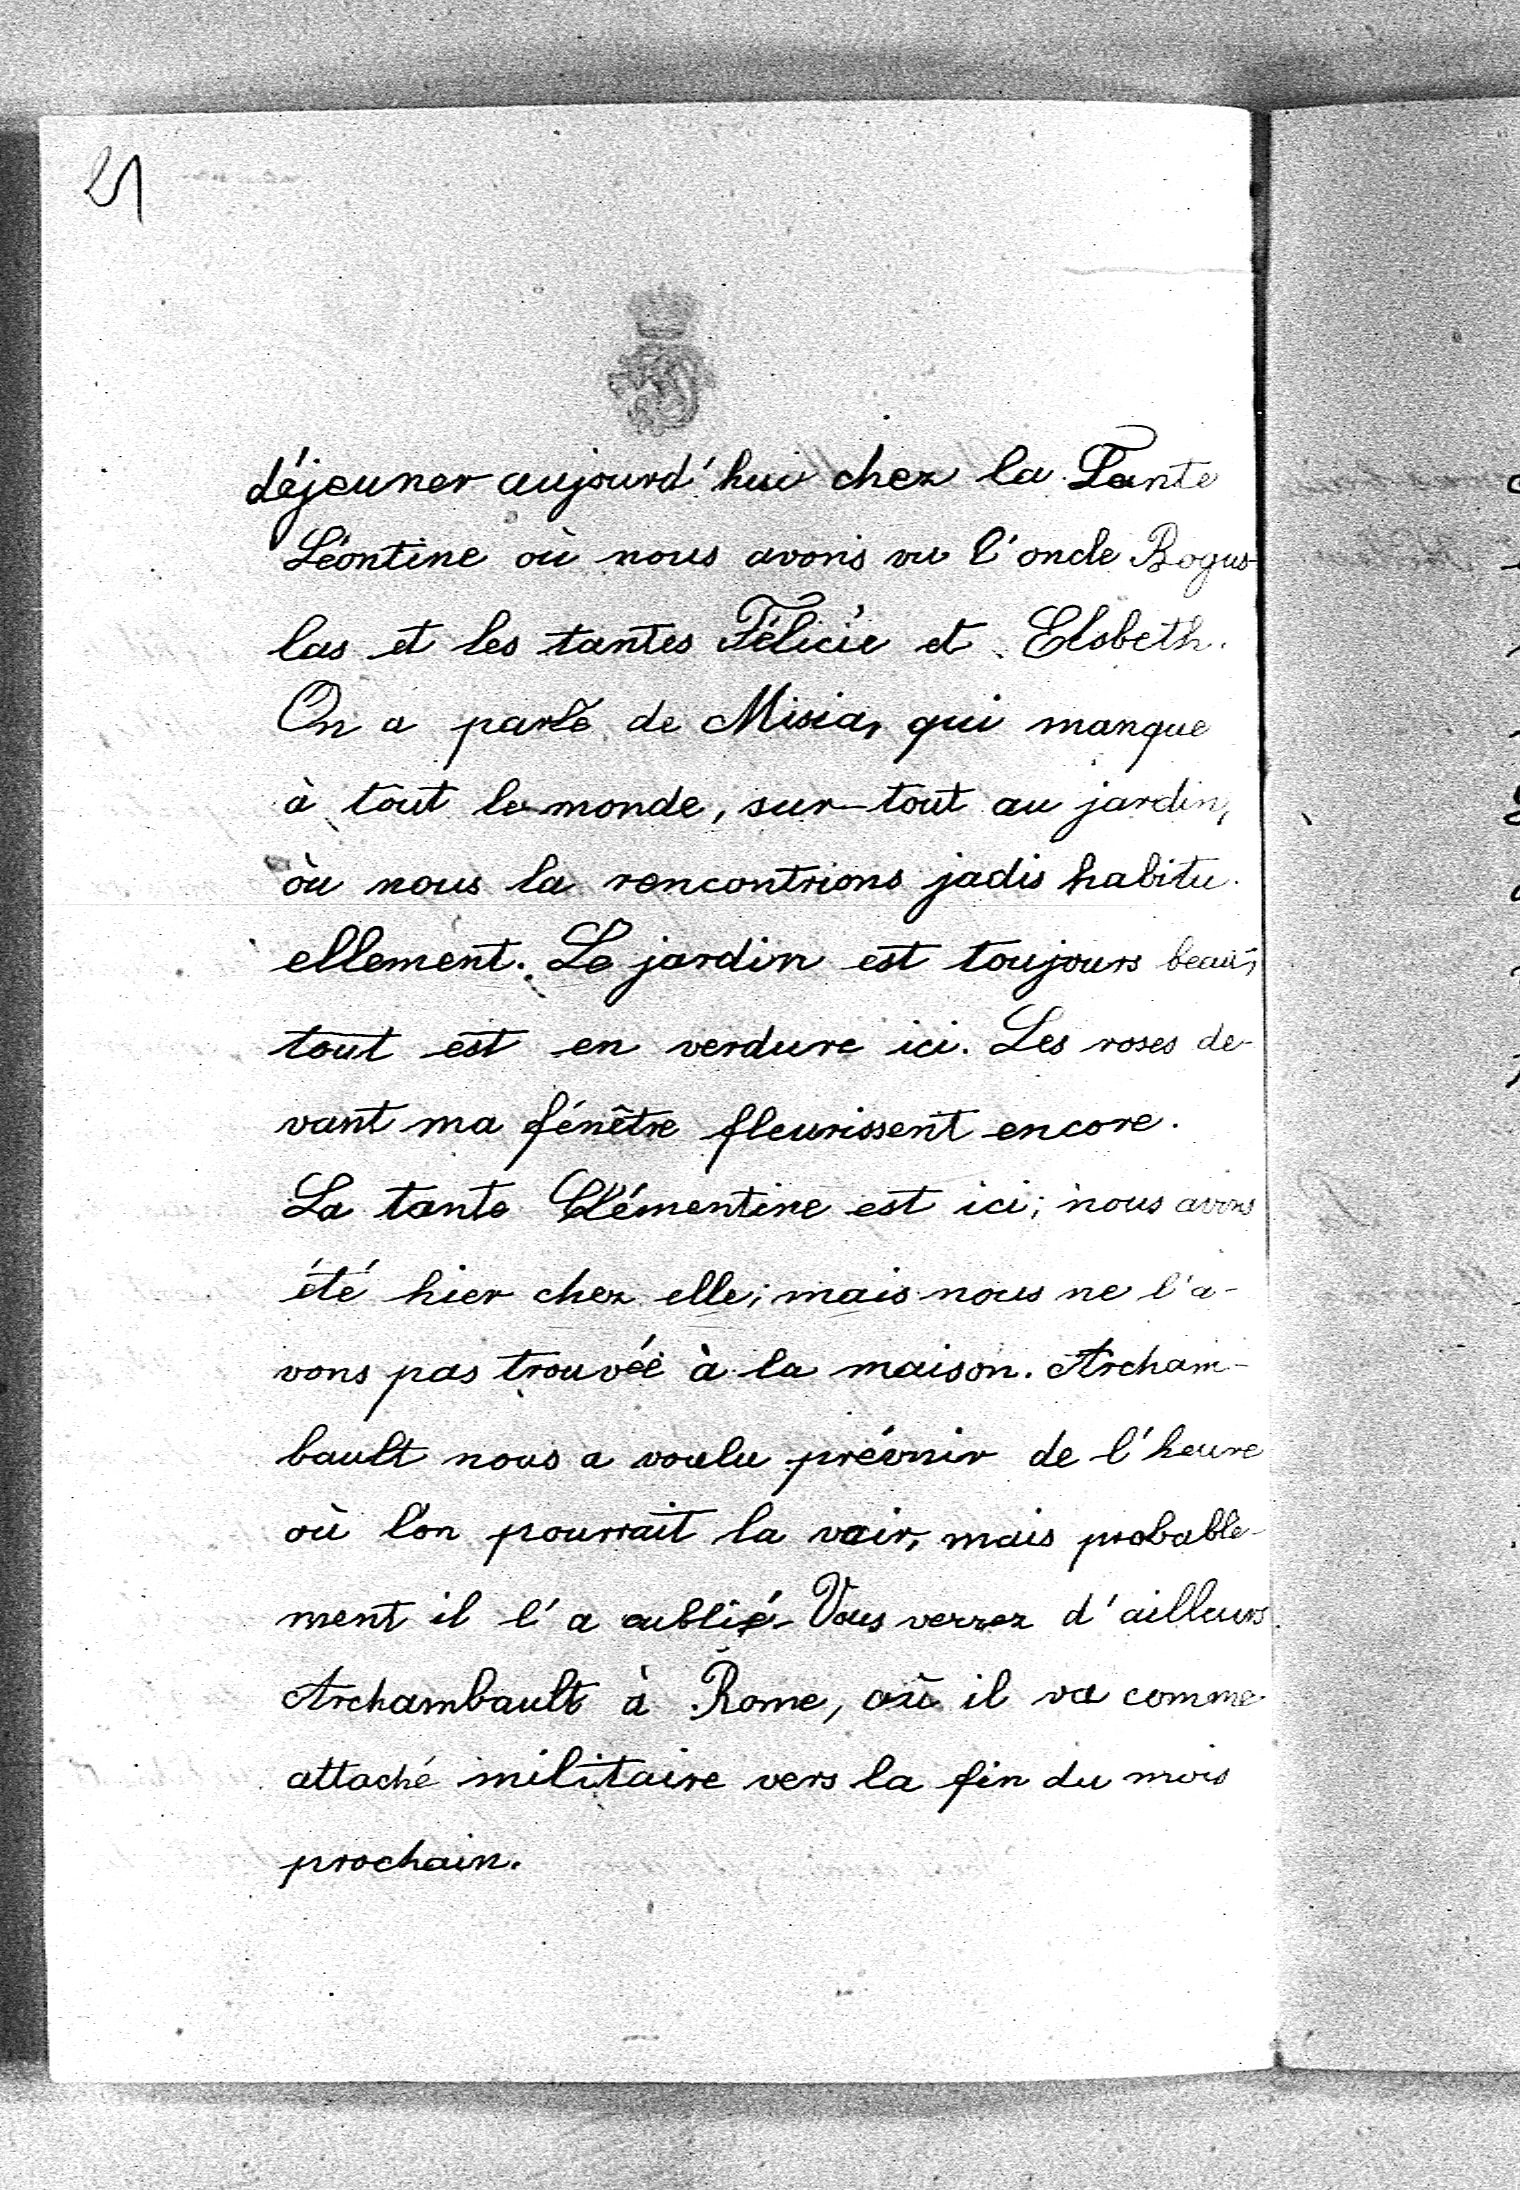 21
déjeuner aujourd'hui chez la Tante
Léontine où nous avons vu l'oncle Bogus-
las et les tantes Félicie et Elsbeth.
On a parlé de Misia, qui manque
à tout le monde, sur-tout au jardin,
où nous la rencontrions jadis habitu-
ellement. Le jardin est toujours beau,
tout est en verdure ici. Les roses de-
vant ma fénêtre fleurissent encore.
La tante Clémentine est ici; nous avons
été hier chez elle; mais nous ne l'a-
vons pas trouvée à la maison. Archam-
bault nous a voulu prévenir de l'heure
où l'on pourrait la voir, mais probable-
ment il l'a oublié. Vous verrez d'ailleurs
Archambault à Rome, où il va comme
attaché militaire vers la fin du mois
prochain.